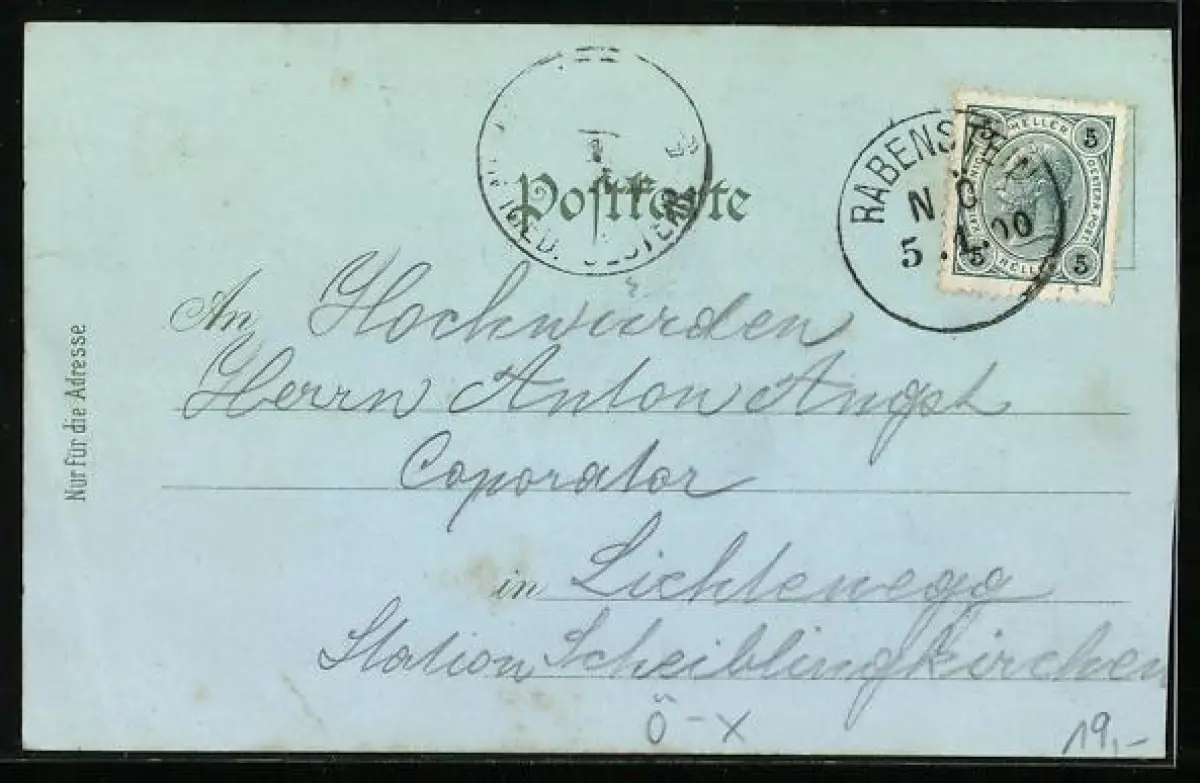 Postkarte
RABENSTEIN
N.Ö.
5. 1.00
5 HELLER 5
5 HELLER 5
NIED. OESTERR
Nur für die Adresse
An Hochwürden
Herrn Anton Angst
Coporator
in Lichtenegg
Station Scheiblingkirchen
Ö-X
19,-